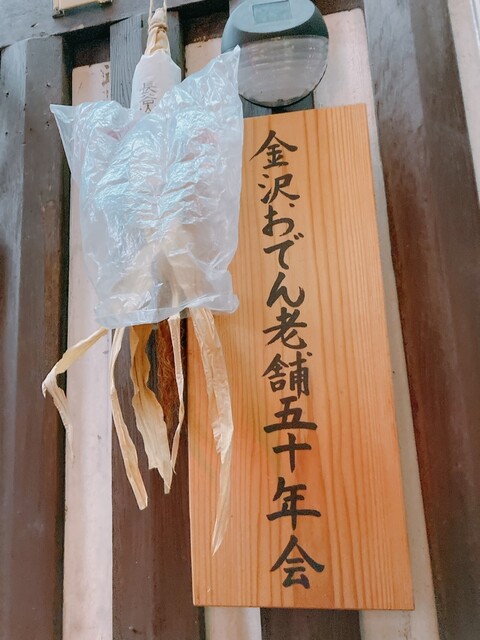 金沢おでん老舗五十年会